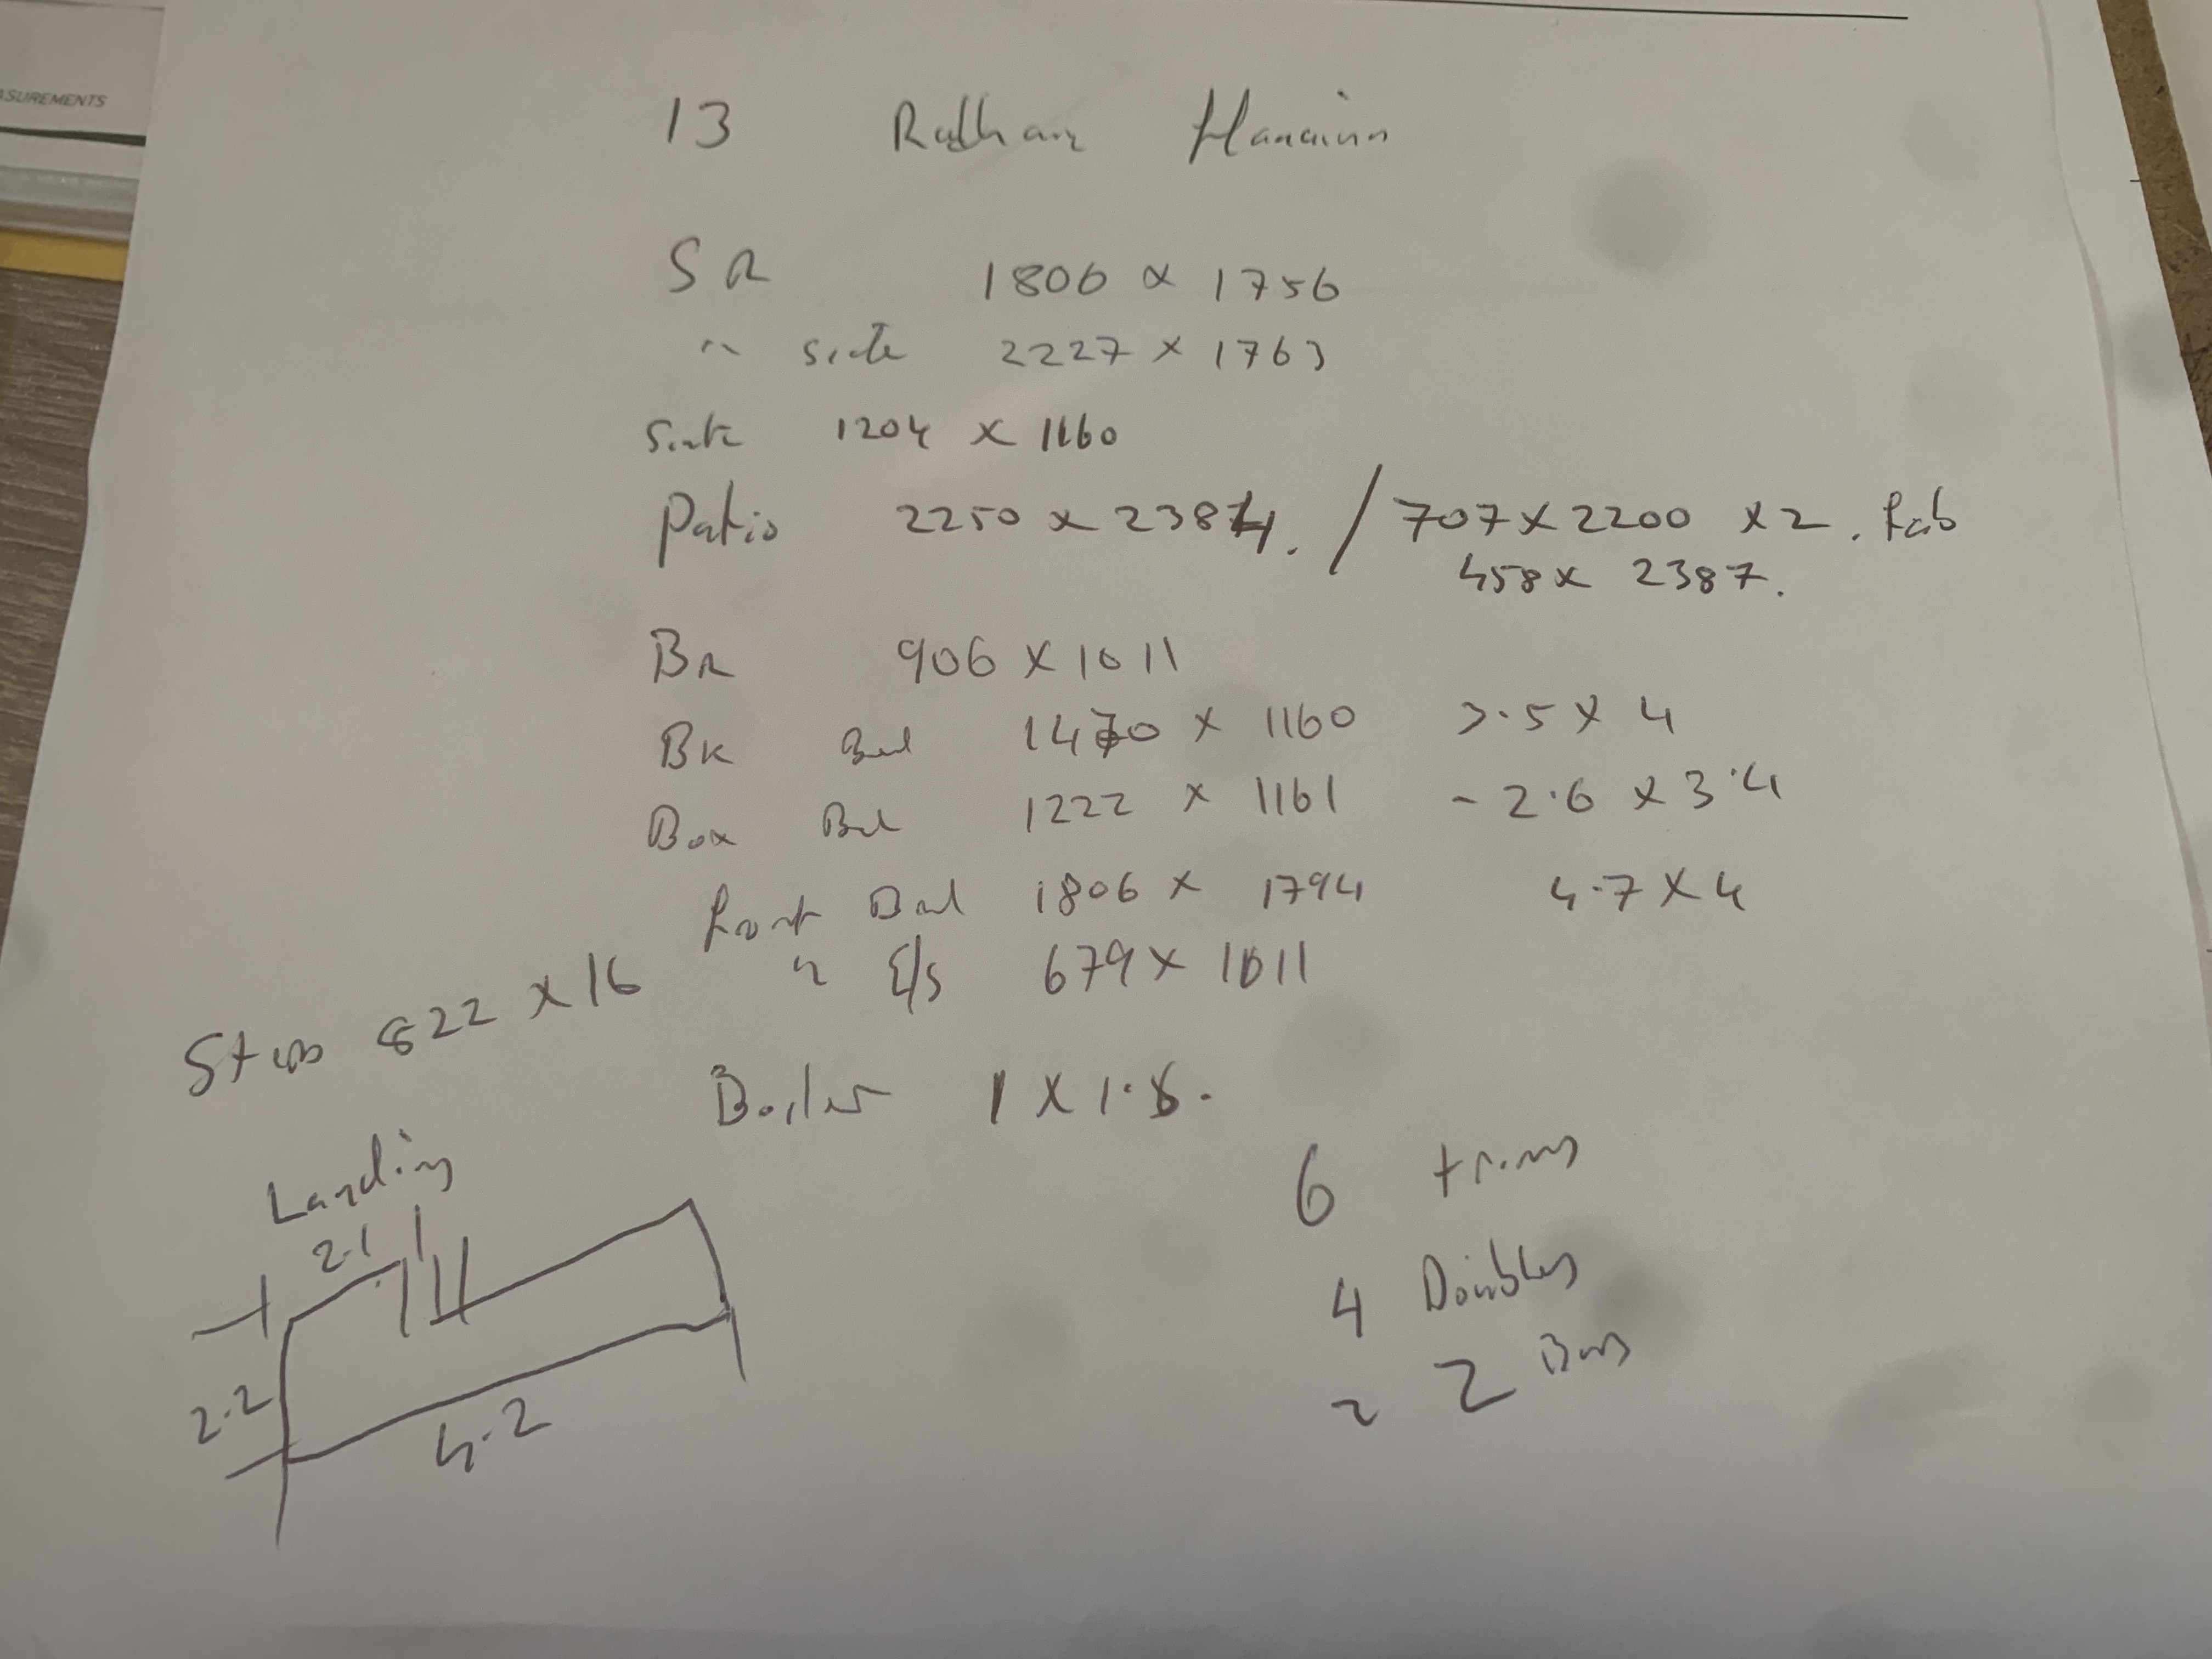 ASUREMENTS
13
SR 1806 x 1756
" side 2227 x 1763
Side 1204 x 1160
Patio 2250 x 2384. / 707 x 2200 x 2. Fab
458 x 2387.
BR 906 x 1011
BK Bed 1470 x 1160 3.5 x 4
Box Bed 1222 x 1161 - 2.6 x 3.4
Front Bed 1806 x 1794 4.7 x 4
" E/S 679 x 1011
Steps 822 x 16
Boiler 1 x 1.8.
Landing
2.1
2.2
4.2
6 trims
4 Doubles
2